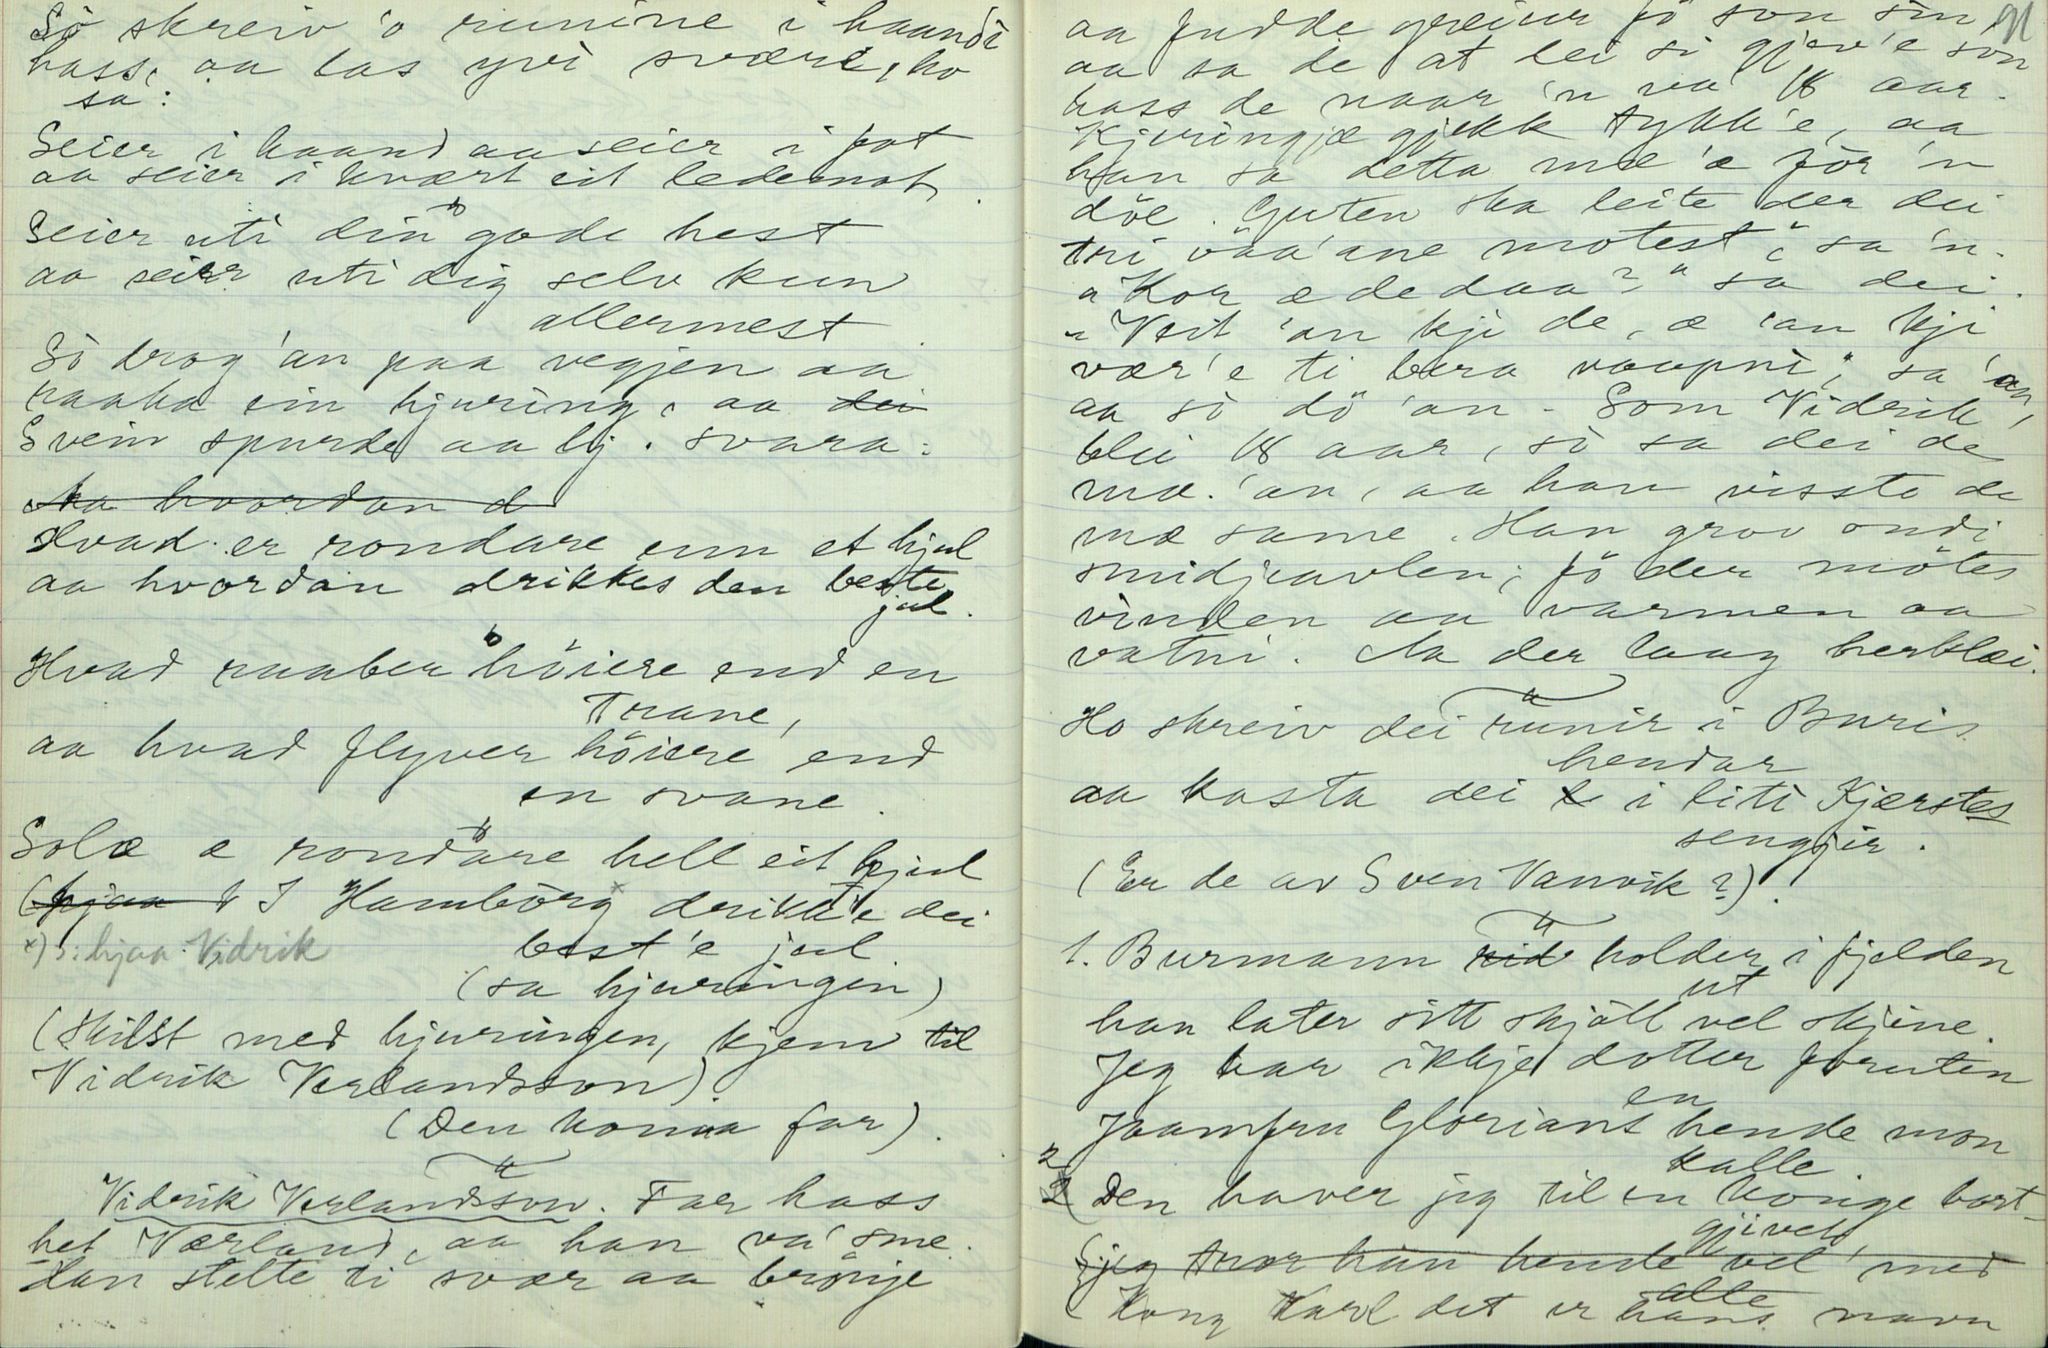 Sò skreiv 'o runine i haandi
hass, aa las yvi svære, ho
sa:
Seier i haand aa seier i fot
aa seier i hvært eit ledemot.
Seier uti din gode hest
aa seier uti dig selv kun
allermest
Sò drog 'an paa vegjen aa
raaka ein hjuring, aa dei
Svein spurde aa hj. svara:
aa hvordan d
Hvad er rondare enn et hjul
aa hvordan drikkes den beste
jul.
Hvad raaber höiere end en
Trane,
aa hvad flyver höiere end
en svane.
Solæ e rondare hell eit hjul
(hjaa I Hamborg x drikk'e dei
x) ɔ: hjaa Vidrik
best'e jul
(sa hjuringen)
(Skilst med hjuringen, kjem til
Vidrik Verlandsson)
(Den konna far).
Vidrik Verlandsson. Far hass
het Værland, aa han va' sme.
Han stelte ti svær aa brönje
91
aa fudde greiur fö son sin,
aa sa de at dei si gjev'e son
hass de naar 'n va' 18 aar.
Kjeringjæ gjekk tykk'e, aa
han sa detta mæ 'æ för 'n
döe. Guten ska leite der dei
tri vaa'ane motest", sa 'n.
"Kor æ de daa?" sa dei.
"Veit 'an kji de, æ 'an kji
vær'e ti bera vaapni", sa 'an,
aa sò dö 'an. Som Vidrik
blei 18 aar, sò sa dei de
mæ 'an, aa han visste de
mæ same. Han grov ondi
smidjeavlen; fö der mötes
vinden aa varmen aa
vatni. Aa der laag herklæi.
Ho skreiv dei runir i Buris
hendar
aa kasta dei i liti Kjærstes
sengjir.
(Er de av Sven Vanvik?)
1. Burmann rid holder i fjelden
ut
han later sitt skjöll vel skjine
Jeg har ikkje dotter foruten
en
Jaamfru Gloriant hende mon
kalle.
2 Den haver jeg til en konge bort-
gjivet,
jeg tror han hende vel med
alle
Kong Karl det er hans navn